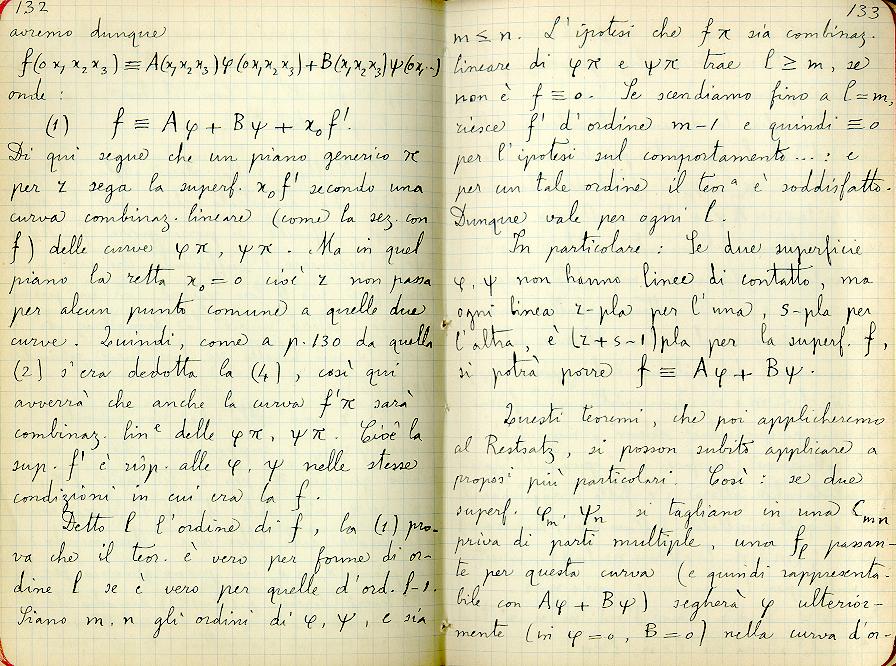 132
avremo dunque
f(0x₁x₂x₃) ≡ A(x₁x₂x₃)φ(0x₁x₂x₃)+B(x₁x₂x₃)ψ(0x₁...)
onde :
(1) f ≡ Aφ + Bψ + x₀f'.
Di qui segue che un piano generico π
per r sega la superf. x₀f' secondo una
curva combinaz. lineare (come la sez. con
f) delle curve φπ, ψπ. Ma in quel
piano la retta x₀=0 cioè r non passa
per alcun punto comune a quelle due
curve. Quindi, come a p.130 da quella
(2) s'era dedotta la (4), così qui
avverrà che anche la curva f'π sarà
combinaz. linᵉ delle φπ, ψπ. Cioè la
sup. f' è risp. alle φ, ψ nelle stesse
condizioni in cui era la f.
Detto l l'ordine di f, la (1) pro-
va che il teor. è vero per forme di or-
dine l se è vero per quelle d'ord. l-1.
Siano m, n gli ordini di φ, ψ, e sia
133
m ≤ n. L'ipotesi che fπ sia combinaz.
lineare di φπ e ψπ trae l ≥ m, se
non è f ≡ 0. Se scendiamo fino a l=m,
riesce f' d'ordine m-1 e quindi ≡0
per l'ipotesi sul comportamento...: e
per un tale ordine il teorᵃ è soddisfatto.
Dunque vale per ogni l.
In particolare : Se due superficie
φ, ψ non hanno linee di contatto, ma
ogni linea r-pla per l'una, s-pla per
l'altra, è (r+s-1)pla per la superf. f,
si potrà porre f ≡ Aφ + Bψ.
Questi teoremi, che poi applicheremo
al Restsatz, si posson subito applicare a
proposⁱ più particolari. Così : se due
superf. φₘ, ψₙ si tagliano in una Cₘₙ
priva di parti multiple, una fₗ passan-
te per questa curva (e quindi rappresenta-
bile con Aφ + Bψ) segherà φ ulterior-
mente (in φ=0, B=0) nella curva d'or-